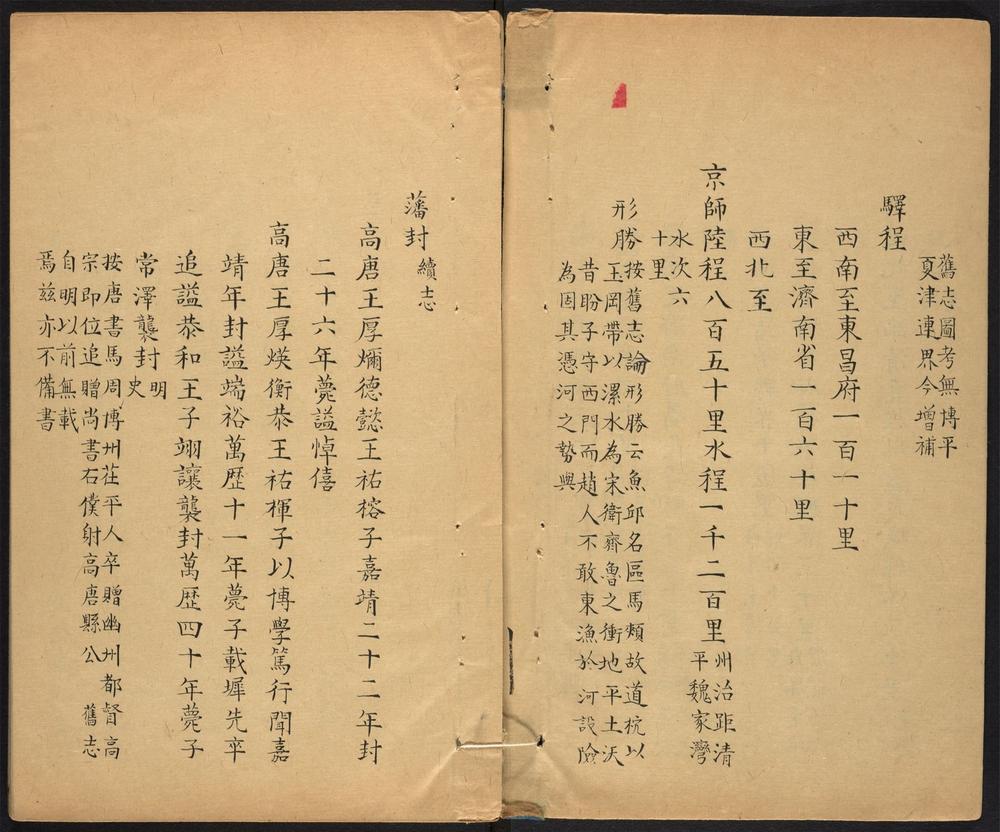 驛程
舊志圖考無博平
夏津連界今增補
西南至東昌府一百一十里
東至濟南省一百六十里
西北至
京師陸程八百五十里水程一千二百里
州治距清
平魏家灣
水次六
十里
形勝
按舊志論形勝云魚邱名區馬頰故道枕以
玉岡帶以漯水為宋衛齊魯之衝地平土沃
昔盼子守西門而趙人不敢東漁於河設險
為固其憑河之勢與
藩封
續志
高唐王厚爤德懿王祐榕子嘉靖二十二年封
二十六年薨謚悼僖
高唐王厚煐衡恭王祐楎子以博學篤行聞嘉
靖年封謚端裕萬歷十一年薨子載墀先卒
追謚恭和王子翊讓襲封萬歷四十年薨子
常澤襲封
明
史
按唐書馬周博州茌平人卒贈幽州都督高
宗即位追贈尚書右僕射高唐縣公
舊志
自明以前無載
焉茲亦不備書